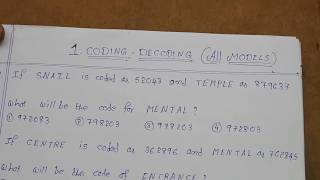 1. CODING - DECODING (All MODELS)
If SNAIL is coded as 52043 and TEMPLE as 879637
what will be the code for MENTAL ?
① 972083 ② 798203 ③ 978203 ④ 972803
If CENTRE is coded as 362896 and MENTAL as 762845
What will be the code of ENTRANCE ?